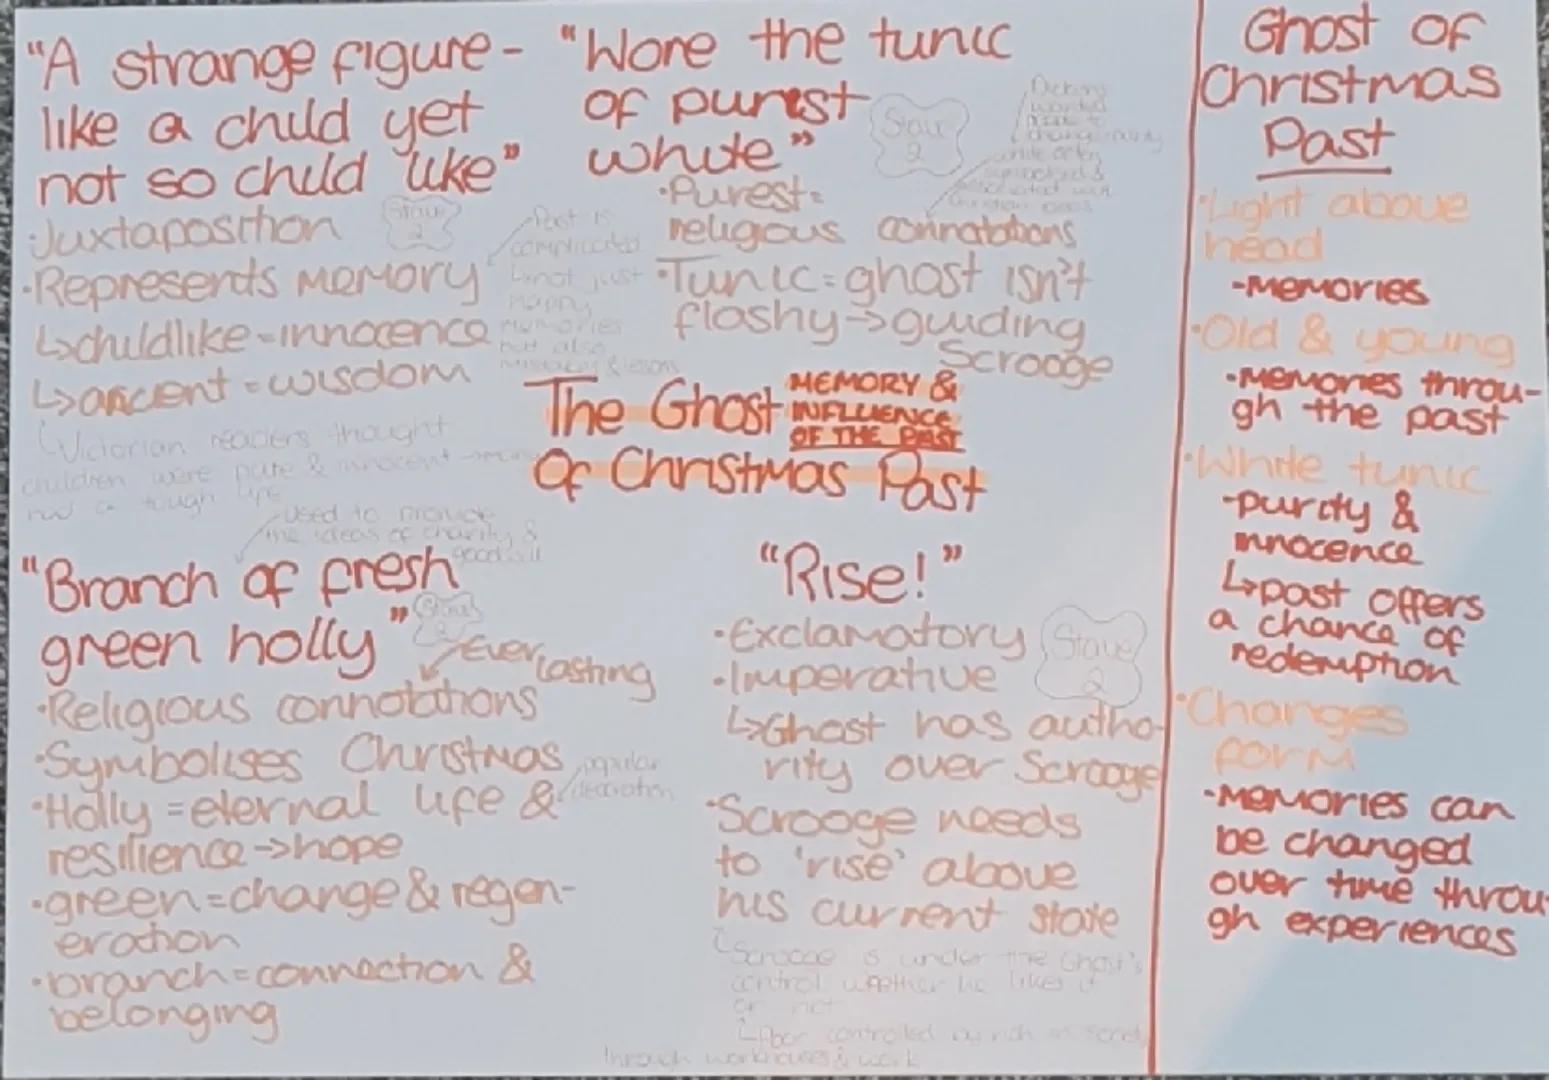 "A strange figure-
like a child yet
not so child like"
Stave
2
·Juxtaposition
·Represents memory
↳childlike=innocence
↳ancient=wisdom
Past is
complicated
↳not just
happy
memories
but also
mistakes & lessons
↳Victorian readers thought
children were pure & innocent→many
had a tough life
"Wore the tunic
of purest
white"
Stave
2
Dickens
wanted
people to
change
white often
symbolised &
associated with
Christian ideas
·Purest=
religious connotations
·Tunic=ghost isn't
flashy→guiding
Scrooge
The Ghost
MEMORY &
INFLUENCE
OF THE PAST
Of Christmas Past
used to provide
the ideas of charity &
goodwill
"Branch of fresh
green holly"
Stave
2
Ever
lasting
·Religious connotations
·Symbolises Christmas
popular
decoration
·Holly=eternal life &
resilience→hope
·green=change & regen-
eration
·branch=connection &
belonging
"Rise!"
Stave
2
·Exclamatory
·Imperative
↳Ghost has autho-
rity over Scrooge
·Scrooge needs
to 'rise' above
his current state
↳Scrooge is under the Ghost's
control whether he likes it
or not
↳Poor controlled by rich in society
through workhouses & work
Ghost of
Christmas
Past
·Light above
head
-memories
·Old & young
·memories throu-
gh the past
·White tunic
-purity &
innocence
↳past offers
a chance of
redemption
·Changes
form
·memories can
be changed
over time throu-
gh experiences